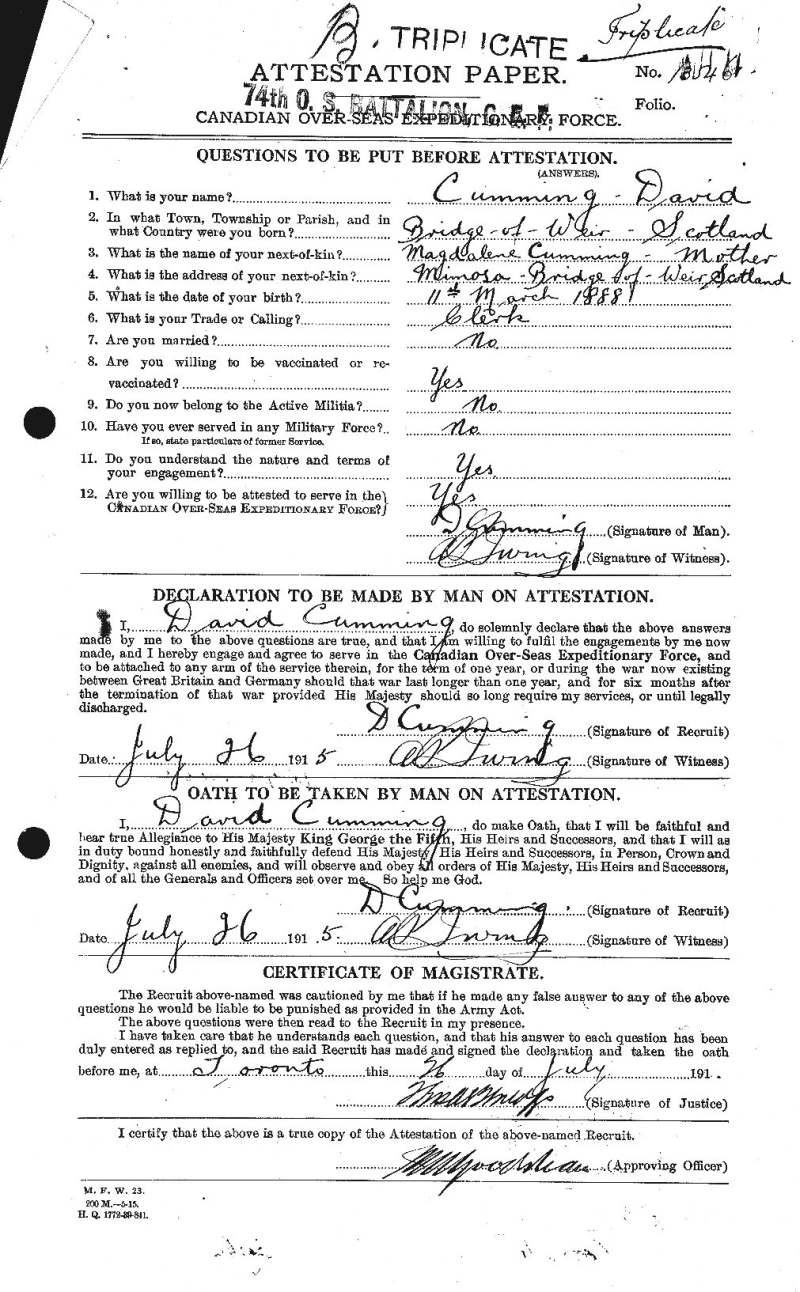 B. TRIPLICATE Triplicate
ATTESTATION PAPER. No.
74th O. S. BATTALION C. E. F. Folio.
CANADIAN OVER-SEAS EXPEDITIONARY FORCE.
QUESTIONS TO BE PUT BEFORE ATTESTATION.
(ANSWERS).
1. What is your name? Cumming - David
2. In what Town, Township or Parish, and in
what Country were you born? Bridge-of-Weir - Scotland
3. What is the name of your next-of-kin? Magdalene Cumming - Mother
4. What is the address of your next-of-kin? Mimosa - Bridge of - Weir, Scotland
5. What is the date of your birth? 11th March 1888
6. What is your Trade or Calling? Clerk
7. Are you married? No
8. Are you willing to be vaccinated or re-
vaccinated? Yes
9. Do you now belong to the Active Militia? No
10. Have you ever served in any Military Force? No
If so, state particulars of former Service.
11. Do you understand the nature and terms of
your engagement? Yes
12. Are you willing to be attested to serve in the
CANADIAN OVER-SEAS EXPEDITIONARY FORCE? Yes
D Cumming (Signature of Man).
(Signature of Witness).
DECLARATION TO BE MADE BY MAN ON ATTESTATION.
I, David Cumming, do solemnly declare that the above answers
made by me to the above questions are true, and that I am willing to fulfil the engagements by me now
made, and I hereby engage and agree to serve in the Canadian Over-Seas Expeditionary Force, and
to be attached to any arm of the service therein, for the term of one year, or during the war now existing
between Great Britain and Germany should that war last longer than one year, and for six months after
the termination of that war provided His Majesty should so long require my services, or until legally
discharged.
D Cumming (Signature of Recruit)
Date. July 26 1915 (Signature of Witness)
OATH TO BE TAKEN BY MAN ON ATTESTATION.
I, David Cumming, do make Oath, that I will be faithful and
bear true Allegiance to His Majesty King George the Fifth, His Heirs and Successors, and that I will as
in duty bound honestly and faithfully defend His Majesty His Heirs and Successors, in Person, Crown and
Dignity, against all enemies, and will observe and obey all orders of His Majesty, His Heirs and Successors,
and of all the Generals and Officers set over me. So help me God.
D Cumming (Signature of Recruit)
Date July 26 1915. (Signature of Witness)
CERTIFICATE OF MAGISTRATE.
The Recruit above-named was cautioned by me that if he made any false answer to any of the above
questions he would be liable to be punished as provided in the Army Act.
The above questions were then read to the Recruit in my presence.
I have taken care that he understands each question, and that his answer to each question has been
duly entered as replied to, and the said Recruit has made and signed the declaration and taken the oath
before me, at Toronto this 26 day of July 191 .
(Signature of Justice)
I certify that the above is a true copy of the Attestation of the above-named Recruit.
(Approving Officer)
M. F. W. 23.
200 M.—5-15.
H. Q. 1772-39-841.